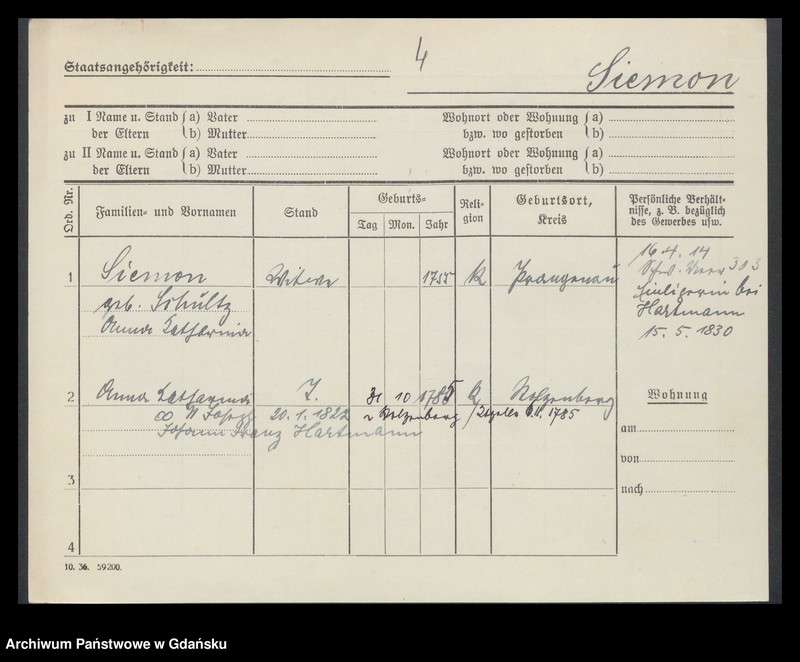 4
Staatsangehörigkeit:
Siemon
zu I Name u. Stand der Eltern a) Vater
b) Mutter
Wohnort oder Wohnung bzw. wo gestorben a)
b)
zu II Name u. Stand der Eltern a) Vater
b) Mutter
Wohnort oder Wohnung bzw. wo gestorben a)
b)
Ord. Nr.
Familien- und Vornamen
Stand
Geburts-
Tag Mon. Jahr
Reli-
gion
Geburtsort,
Kreis
Persönliche Verhält-
nisse, z. B. bezüglich
des Gewerbes usw.
1 Siemon Witwe 1755 k Prangenau
geb. Schultz
Anna Catharina
16. 4. 14
303
bei
Hartmann
15. 5. 1830
2 Anna Catharina T. 31 10 1785 k Stolzenberg
∞ Joseph 20. 1. 1822 1785
Johann Franz Hartmann
Wohnung
am
von
nach
3
4
10. 36. 59200.
Archiwum Państwowe w Gdańsku